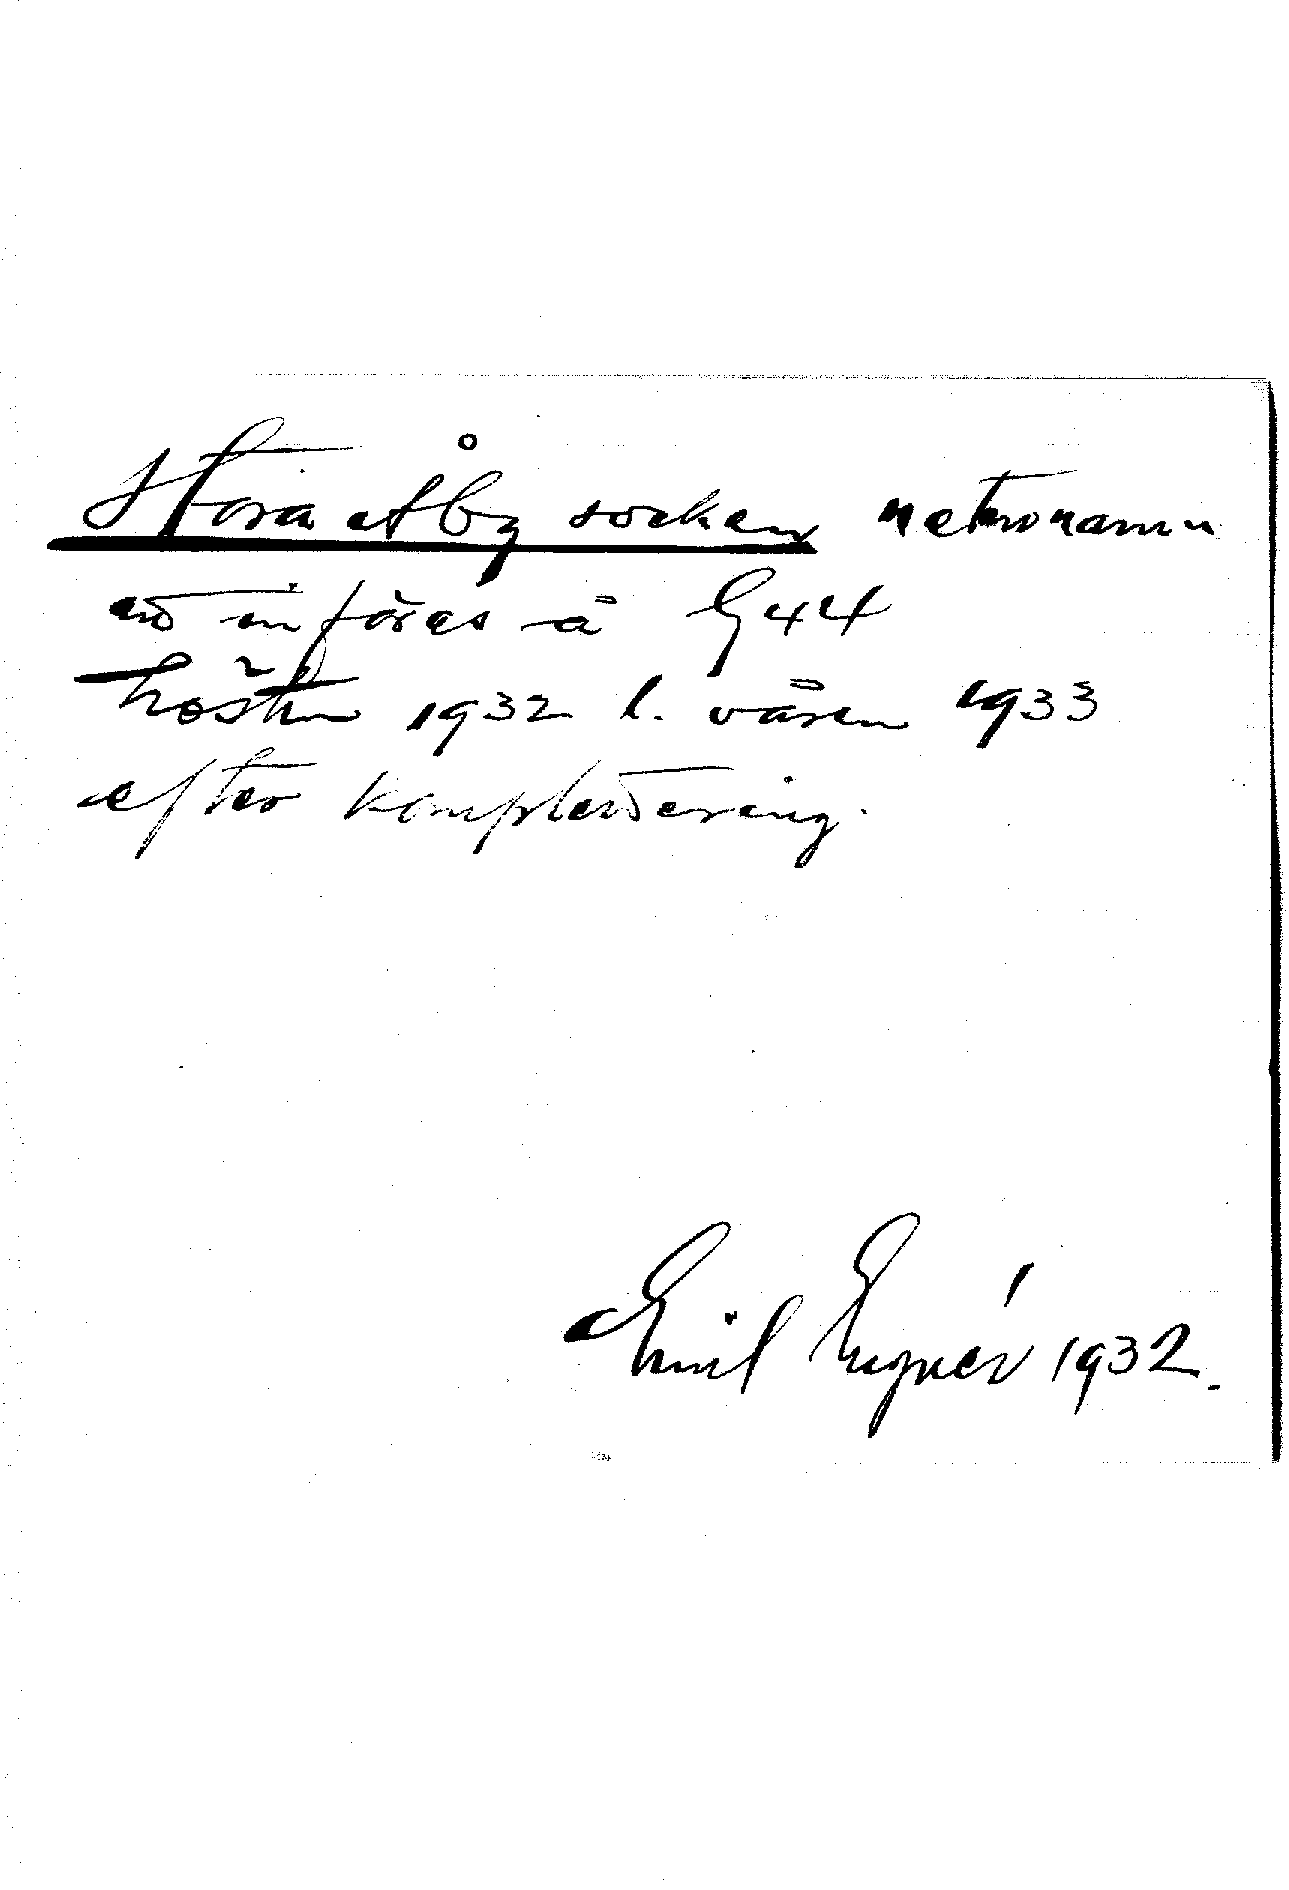 Stora Åby sockens naturnamn
att införas å G44
hösten 1932 l. våren 1933
efter komplettering.
Emil 1932.